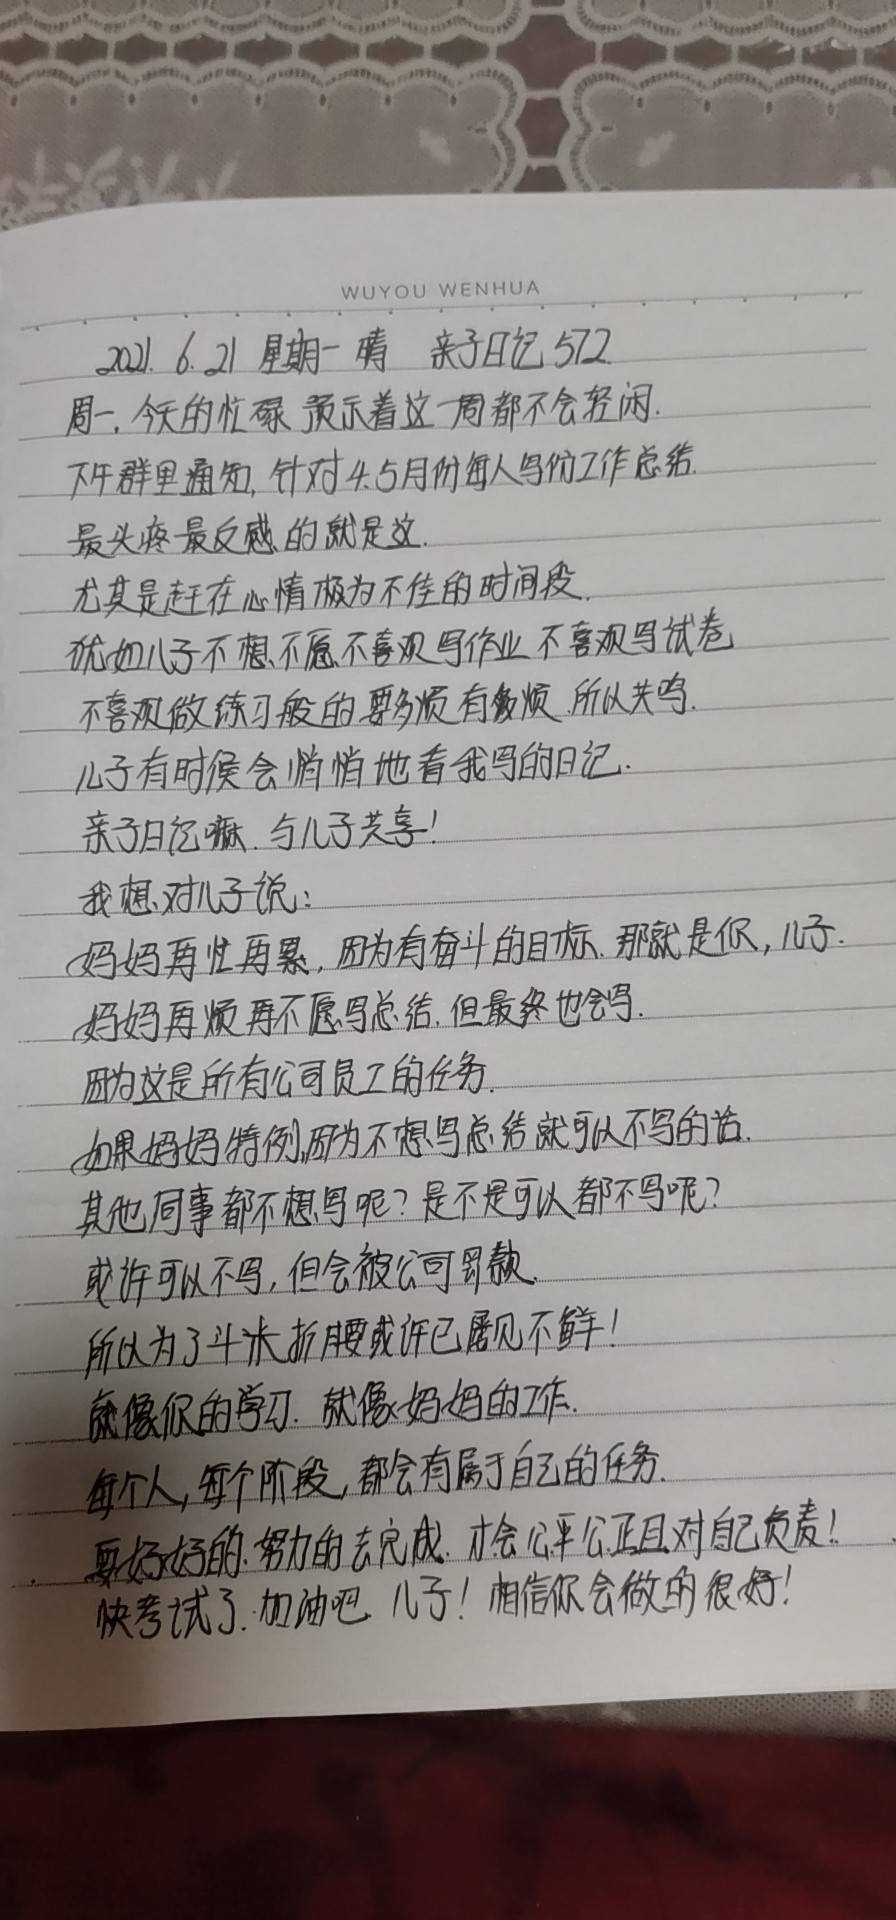 WUYOU WENHUA
2021. 6. 21 星期一 晴 亲子日记 572.
周一,今天的忙碌 预示着这一周都不会轻闲.
下午群里通知,针对4.5月份每人写份工作总结.
最头疼最反感的就是这.
尤其是赶在心情极为不佳的时间段.
犹如儿子不想不愿不喜欢写作业 不喜欢写试卷
不喜欢做练习般的要多烦有多烦.所以共鸣.
儿子有时候会悄悄地看我写的日记.
亲子日记嘛.与儿子共享!
我想对儿子说:
妈妈再忙再累,因为有奋斗的目标.那就是你,儿子.
妈妈再烦再不愿写总结.但最终也会写.
因为这是所有公司员工的任务.
如果妈妈特例,因为不想写总结就可以不写的话.
其他同事都不想写呢?是不是可以都不写呢?
或许可以不写,但会被公司罚款.
所以为了斗米折腰或许已屡见不鲜!
就像你的学习.就像妈妈的工作.
每个人,每个阶段,都会有属于自己的任务.
要好好的.努力的去完成.才会公平公正且对自己负责!
快考试了.加油吧 儿子!相信你会做的很好!